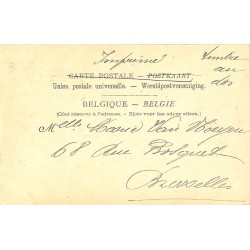 Imprimé
Timbre
au
dos
CARTE POSTALE – POSTKAART
Union postale universelle. – Wereldpostvereeniging.
BELGIQUE – BELGIE
(Côté réservé à l'adresse. – Zijde voor het adres alleen.)
Melle Maria Van
68 Rue
Bruxelles